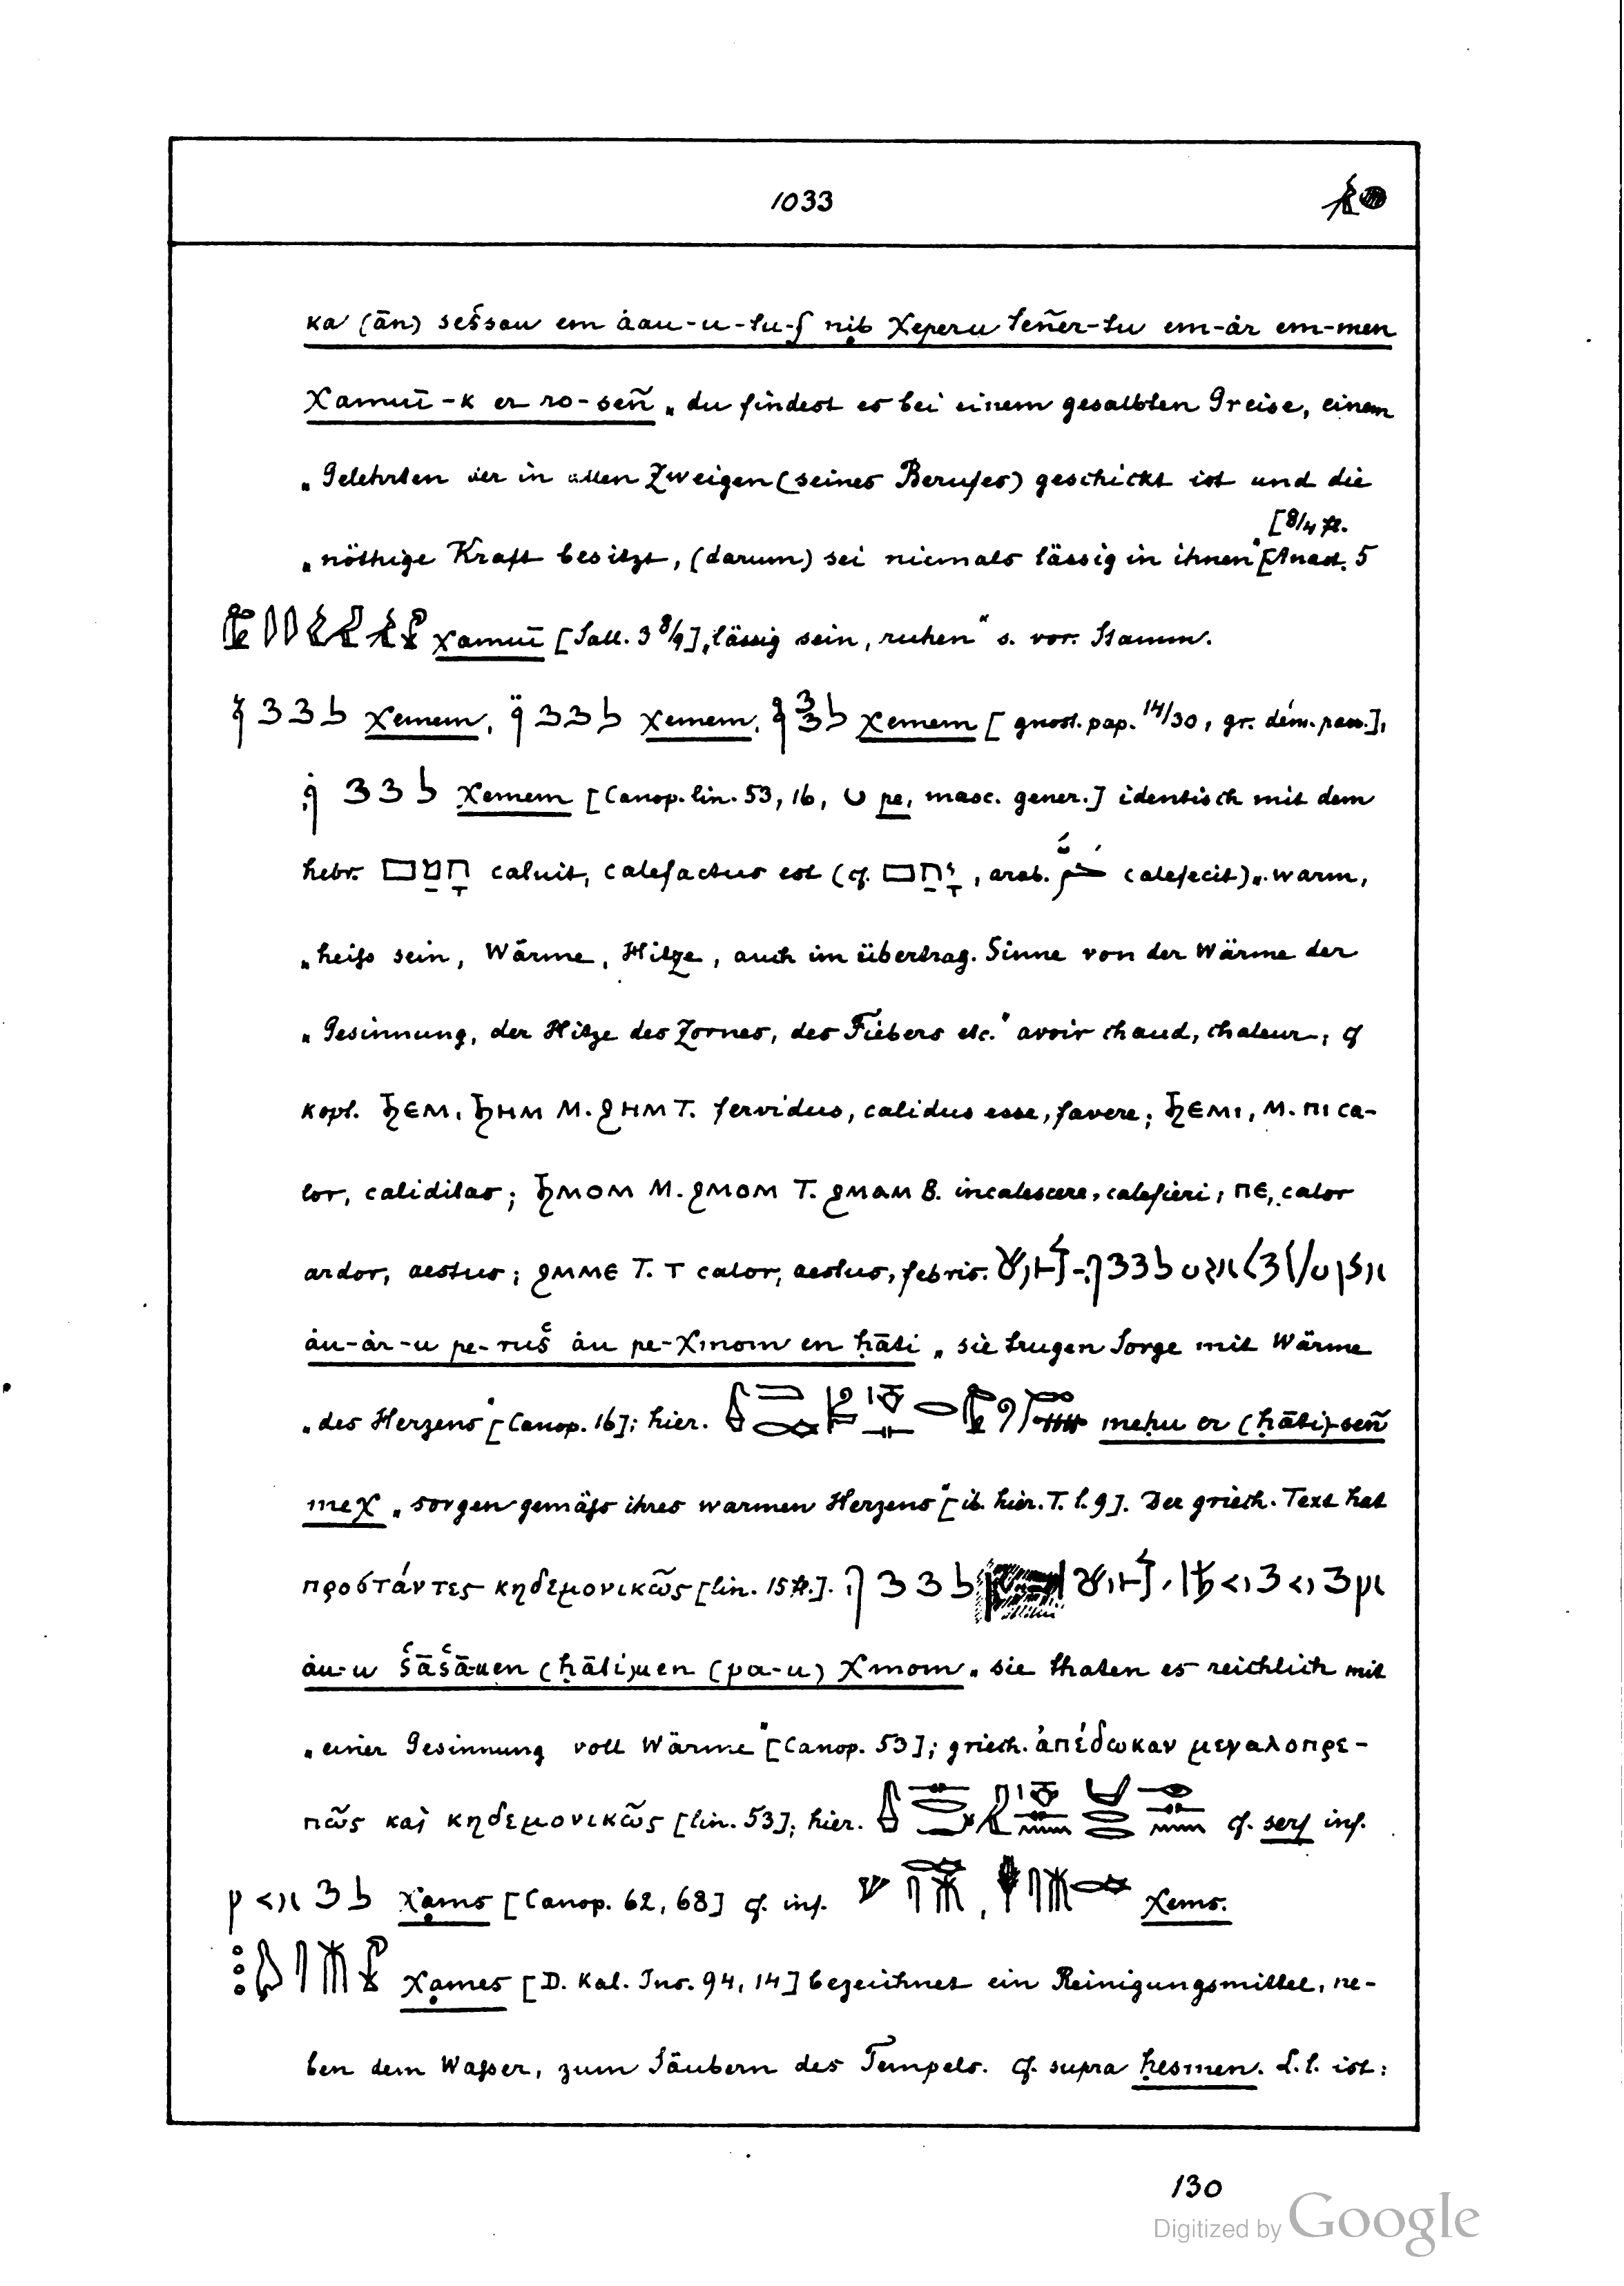 1033
ka (ān) seššau em ȧau-u-tu-f nib χeperu teñer-tu em-ȧr em-men
χamuī-k er ro-señ „du findest es bei einem gesalbten Greise, einem
„Gelehrten der in allen Zweigen (seines Berufes) geschickt ist und die
[8/4 ft.
„nöthige Kraft besitzt, (darum) sei niemals lässig in ihnen“ [Anast. 5
χamuī [Sall. 3 8/9] „lässig sein, ruhen“ s. vor. Stamm.
χemem, χemem, χemem [gnost. pap. 14/30, gr. dém. pass.],
χemem [Canop. lin. 53, 16, pe, masc. gener.] identisch mit dem
hebr. חָמַם caluit, calefactus est (cf. יָחַם, arab. calefecit) „warm,
„heiſs sein, Wärme, Hitze, auch im übertrag. Sinne von der Wärme der
„Gesinnung, der Hitze des Zornes, des Fiebers etc.“ avoir chaud, chaleur; cf
kopt. ϧⲉⲙ, ϧⲏⲙ M. ϩⲏⲙ T. fervidus, calidus esse, favere; ϧⲉⲙⲓ, M. ⲡⲓ ca-
lor, caliditas; ϧⲙⲟⲙ M. ϩⲙⲟⲙ T. ϩⲙⲁⲙ B. incalescere, calefieri; ⲡⲉ, calor
ardor, aestus; ϩⲙⲙⲉ T. ⲧ calor, aestus, febris.
ȧu-ȧr-u pe-ruš ȧu pe-χmom en ḥāti „sie trugen Sorge mit Wärme
„des Herzens“ [Canop. 16]; hier. meḥu er (ḥāti)-señ
meχ „sorgen gemäſs ihres warmen Herzens“ [ib. hier. T. l. 9]. Der griech. Text hat
προστάντες κηδεμονικῶς [lin. 15 ft.].
ȧu-u šāšā-uen (ḥāti)uen (pa-u) χmom „sie thaten es reichlich mit
„einer Gesinnung voll Wärme“ [Canop. 53]; griech. ἀπέδωκαν μεγαλοπρε-
πῶς καὶ κηδεμονικῶς [lin. 53]; hier. cf. serf inf.
χams [Canop. 62, 68] cf. inf. χems.
χames [D. Kal. Ins. 94, 14] bezeichnet ein Reinigungsmittel, ne-
ben dem Waſser, zum Säubern des Tempels. cf. supra ḥesmen. L. l. ist:
130
Digitized by Google